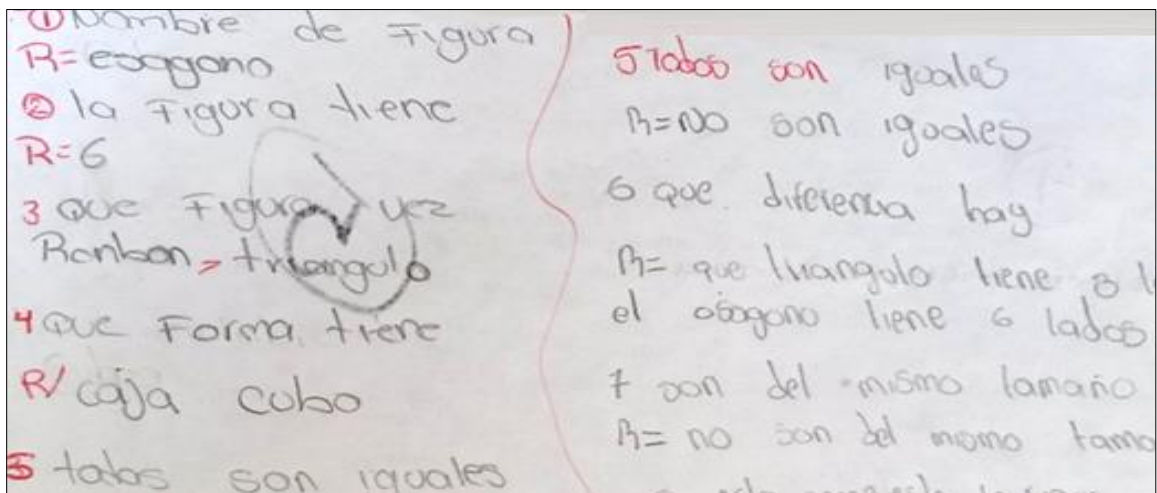 ① Nombre de Figura
R= esaggono
② la Figura tiene
R=6
3 que Figura vez
Ronbon = triangulo
4 que Forma tiene
R/ caja cubo
5 tabos son iguales
5 Tobos son iguales
R=No son iguales
6 que diferencia hay
R= que triangulo tiene 3 l
el osogono tiene 6 lados
7 son del mismo tamaño
R= no son del mismo tama